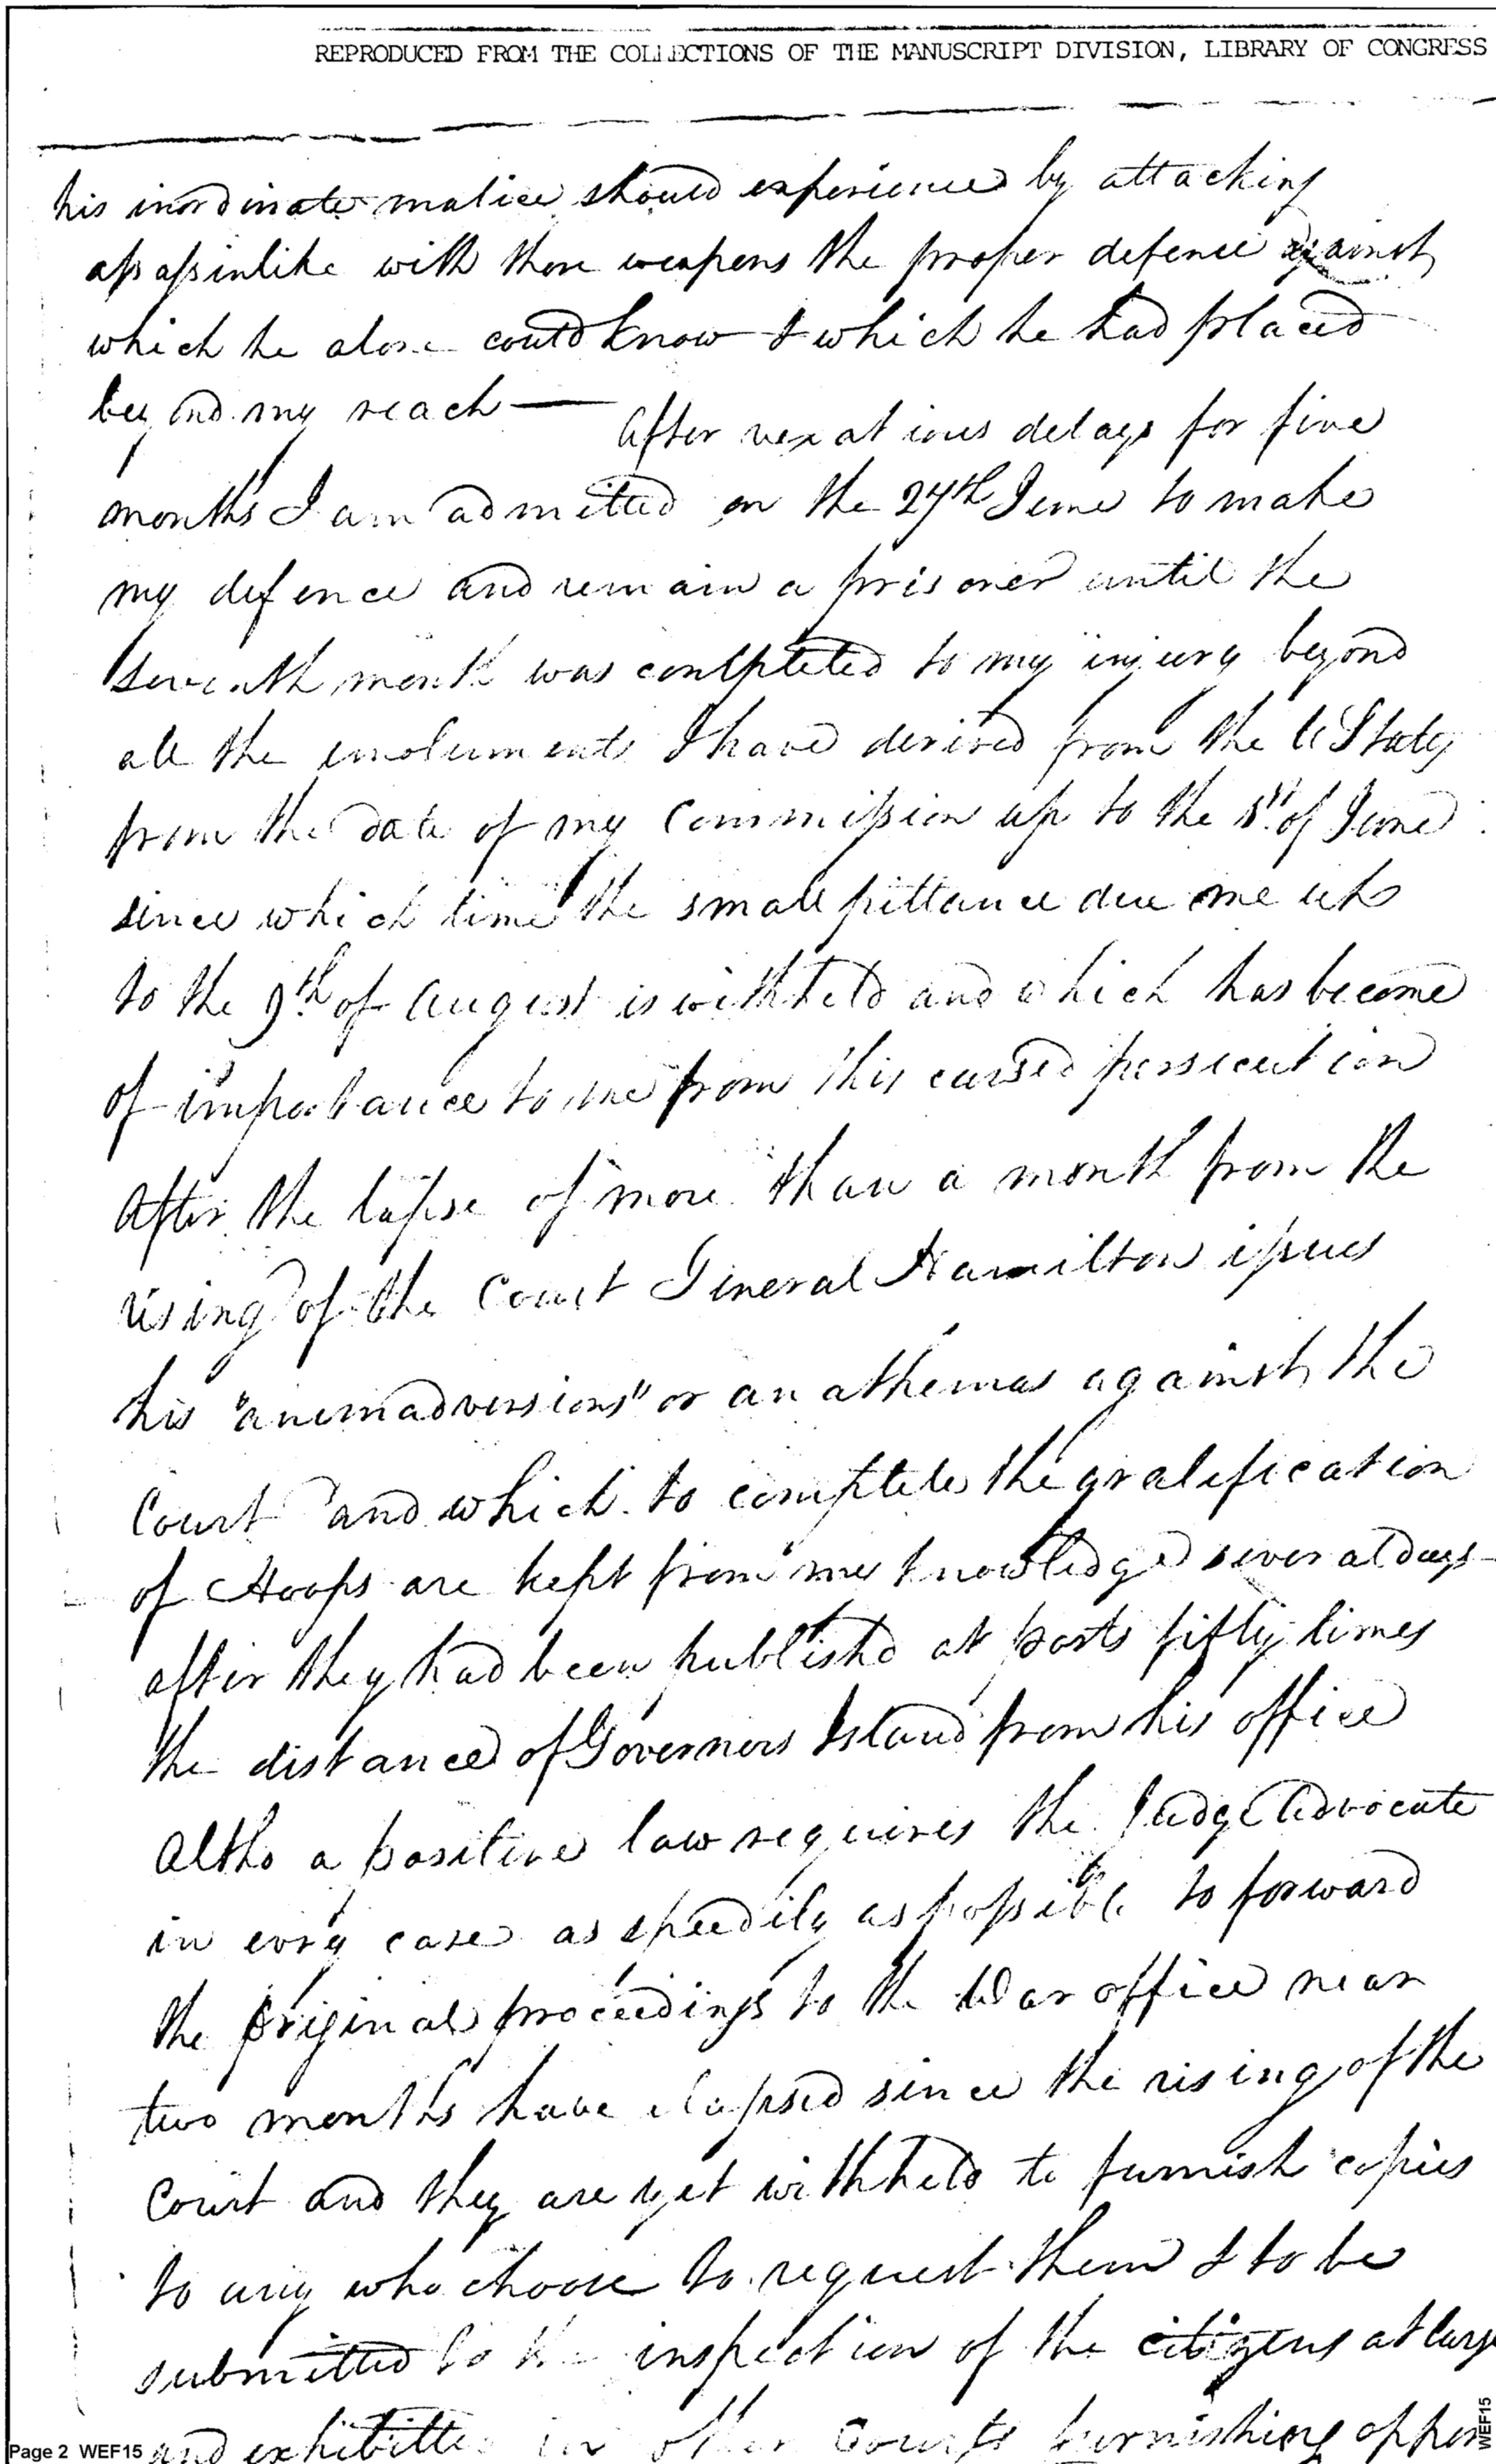 REPRODUCED FROM THE COLLECTIONS OF THE MANUSCRIPT DIVISION, LIBRARY OF CONGRESS
his inordinate malice should experience by attacking
assassinlike with those weapons the proper defence against
which he alone could know & which he had placed
beyond my reach — After vexatious delays for five
months I am admitted on the 27th June to make
my defence and remain a prisoner until the
seventh month was completed to my injury beyond
all the emoluments I have derived from the U States
from the date of my Commission up to the 1st of June
since which time the small pittance due me up
to the 9th of August is withheld and which has become
of importance to me from this cursed persecution
After the lapse of more than a month from the
rising of the Court General Hamilton issues
his "animadversions" or anathemas against the
Court and which to complete the gratification
of Hoops are kept from my knowledge several days
after they had been published at posts fifty times
the distance of Governors Island from his office
Altho a positive law requires the Judge Advocate
in every case as speedily as possible to forward
the original proceedings to the War office near
two months have elapsed since the rising of the
Court and they are yet withheld to furnish copies
to any who choose to request them & to be
submitted to the inspection of the citizens at large
and exhibitted in other Courts furnishing
Page 2 WEF15
WEF15